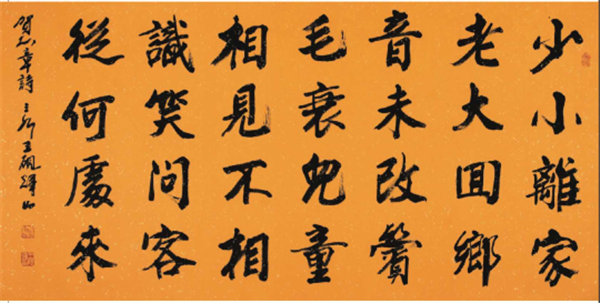 少小離家
老大回鄉
音未改鬢
毛衰兒童
相見不相
識笑問客
從何處來
賀知章詩